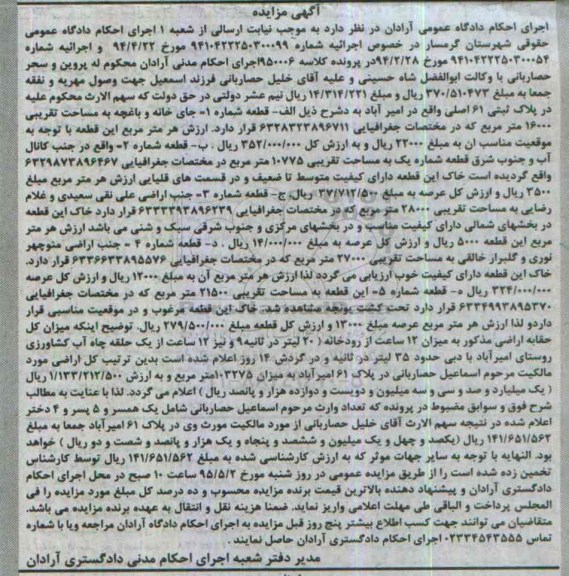 آگهی مزایده
اجرای احکام دادگاه عمومی آرادان در نظر دارد به موجب نیابت ارسالی از شعبه ۱ اجرای احکام دادگاه عمومی
حقوقی شهرستان گرمسار در خصوص اجرائیه شماره ۹۴۱۰۴۲۲۲۵۰۳۰۰۰۹۹ مورخ ۹۴/۴/۲۲ و اجرائیه شماره
۹۴۱۰۴۲۲۲۵۰۳۰۰۰۵۴ مورخ ۹۴/۲/۲۸در پرونده کلاسه ۹۵۰۰۰۶اجرای احکام مدنی آرادان محکوم له پروین و سحر
حصاربانی با وکالت ابوالفضل شاه حسینی و علیه آقای خلیل حصاربانی فرزند اسمعیل جهت وصول مهریه و نفقه
جمعا به مبلغ ۳۷۰/۵۱۰۴۷۳ ریال و مبلغ ۱۴/۳۱۴/۲۲۱ ریال نیم عشر دولتی در حق دولت که سهم الارث محکوم علیه
در پلاک ثبتی ۶۱ اصلی واقع در امیر آباد به دشرح ذیل الف- قطعه شماره ۱- جای خانه و باغچه به مساحت تقریبی
۱۶۰۰۰ متر مربع که در مختصات جغرافیایی ۶۳۲۸۳۲۳۸۹۶۷۱۱ قرار دارد. ارزش هر متر مربع این قطعه با توجه به
موقعیت مناسب ان به مبلغ ۲۲۰۰۰ ریال و به ارزش کل ۳۵۲/۰۰۰/۰۰۰ ریال . ب- قطعه شماره ۲- واقع در جنب کانال
آب و جنوب شرق قطعه شماره یک به مساحت تقریبی ۱۰۷۷۵ متر مربع در مختصات جغرافیایی ۶۳۲۹۸۷۳۸۹۶۴۶۷
واقع گردیده است خاک این قطعه دارای کیفیت متوسط تا ضعیف و در قسمت های قلیایی ارزش هر متر مربع مبلغ
۳۵۰۰ ریال و ارزش کل عرصه به مبلغ ۳۷/۷۱۲/۵۰۰ ریال .ج- قطعه شماره ۳- جنب اراضی علی نقی سعیدی و غلام
رضایی به مساحت تقریبی ۲۸۰۰ متر مربع که در مختصات جغرافیایی ۶۳۳۳۳۹۳۸۹۶۲۳۹ قرار دارد خاک این قطعه
در بخشهای شمالی دارای کیفیت مناسب و در بخشهای مرکزی و جنوب شرقی سبک و شنی می باشد ارزش هر متر
مربع این قطعه ۵۰۰۰ ریال و ارزش کل عرصه به مبلغ ۱۴/۰۰۰/۰۰۰ ریال . د- قطعه شماره ۴ – جنب اراضی منوچهر
نوری و گلبراز خالقی به مساحت تقریبی ۲۷۰۰۰ متر مربع که در مختصات جغرافیایی ۶۳۳۶۶۳۳۸۹۵۵۷۶ قرار دارد.
خاک این قطعه دارای کیفیت خوب ارزیابی می گردد لذا ارزش هر متر مربع آن به مبلغ ۱۲۰۰۰ ریال و ارزش کل عرصه
۳۲۴/۰۰۰/۰۰۰ ریال ه- قطعه شماره ۵- این قطعه به مساحت تقریبی ۲۱۵۰۰ متر مربع که در مختصات جغرافیایی
۶۳۳۴۹۹۳۸۹۵۳۷۰ قرار دارد تحت کشت یونجه مشاهده شد. خاک این قطعه مرغوب و در موقعیت مناسبی قرار
داردو لذا ارزش هر متر مربع عرصه مبلغ ۱۳۰۰۰ و ارزش کل قطعه مبلغ ۲۷۹/۵۰۰/۰۰۰ ریال. توضیح اینکه میزان کل
حقابه اراضی مذکور به میزان ۱۲ ساعت از رودخانه ( ۲۰ لیتر در ثانیه ۹ و نیز ۱۲ ساعت از یک حلقه چاه آب کشاورزی
روستای امیرآباد با دبی حدود ۳۵ لیتر در ثانیه و در گردش ۱۴ روز اعلام شده است بدین ترتیب کل اراضی مورد
مالکیت مرحوم اسماعیل حصاربانی در پلاک ۶۱ امیرآباد به میزان ۱۰۳۲۷۵متر مربع و به ارزش ۱/۱۳۳/۲۱۲/۵۰۰ ریال
( یک میلیارد و صد و سی و سه میلیون و دویست و دوازده هزار و پانصد ریال ) اعلام می گردد. لذا با عنایت به مطالب
شرح فوق و سوابق مضبوط در پرونده که تعداد وارث مرحوم اسماعیل حصاربانی شامل یک همسر و ۵ پسر و ۴ دختر
اعلام شده در نتیجه سهم الارث آقای خلیل حصاربانی از مورد مالکیت مورث وی در پلاک ۶۱ امیرآباد جمعا به مبلغ
۱۴۱/۶۵۱/۵۶۲ ریال (یکصد و چهل و یک میلیون و ششصد و پنجاه و یک هزار و پانصد و شصت و دو ریال ) خواهد
بود. النهایه با توجه به سایر جهات موثر که به ارزش کارشناسی شده به مبلغ ۱۴۱/۶۵۱/۵۶۲ ریال توسط کارشناس
تخمین زده شده است را از طریق مزایده عمومی در روز شنبه مورخ ۹۵/۵/۲ ساعت ۱۰ صبح در محل اجرای احکام
دادگستری آرادان و پیشنهاد دهنده بالاترین قیمت برنده مزایده محسوب و ده درصد کل مبلغ مورد مزایده را فی
المجلس پرداخت و الباقی طی مهلت اعلامی واریز نماید. ضمنا هزینه نقل و انتقال به عهده برنده مزایده می باشد.
متقاضیان می توانند جهت کسب اطلاع بیشتر پنج روز قبل مزایده به اجرای احکام دادگاه آرادان مراجعه ویا با شماره
تماس ۰۲۳۳۴۵۴۳۵۵۵ اجرای احکام دادگستری آرادان حاصل نمایند .
مدیر دفتر شعبه اجرای احکام مدنی دادگستری آرادان